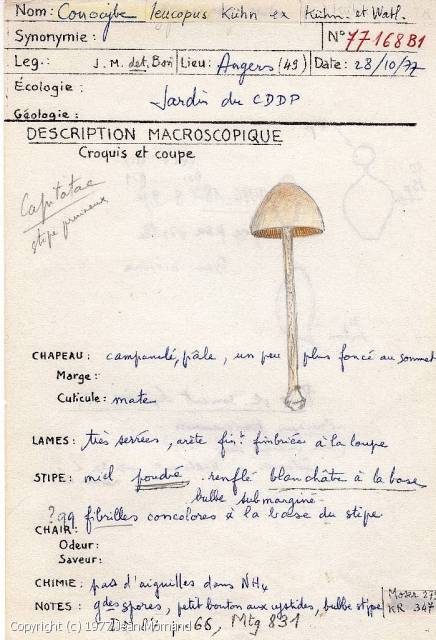 Nom: Conocybe leucopus Kühn ex Kühn. et Watl.
Synonymie: N° 77168B1
Leg.: J.M. det. Bon Lieu: Angers (49) Date: 28/10/77
Écologie: Jardin du CDDP
Géologie:
DESCRIPTION MACROSCOPIQUE
Croquis et coupe
Capitatae
stipe pruineux
CHAPEAU: campanulé, pâle, un peu plus foncé au sommet
Marge:
Cuticule: mate
LAMES: très serrées, arête fint. fimbriée à la loupe
STIPE: miel poudré renflé blanchâtre à la base
bulbe submarginé
?qq fibrilles concolores à la base du stipe
CHAIR:
Odeur:
Saveur:
CHIMIE: pas d'aiguilles dans NH4
NOTES: gdes spores, petit bouton aux cystides, bulbe stipe
Moser 275
KR 347
Copyright (c) 1977 Jean Mornand
66, Mtg 831